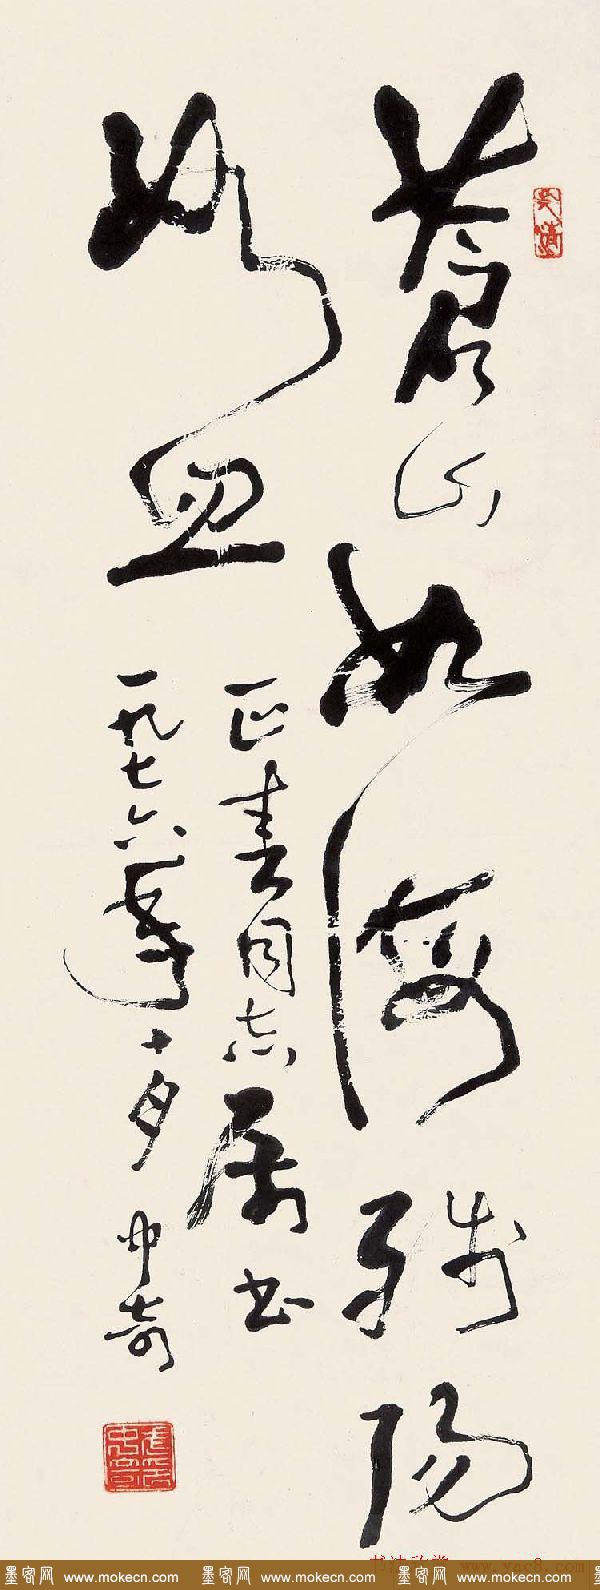 蒼山如海残陽
如血
正春同志属书
一九七六年十月中奇
www.yac8.com
墨客网 www.mokecn.com 墨客网 www.mokecn.com 墨客网 www.mokecn.com